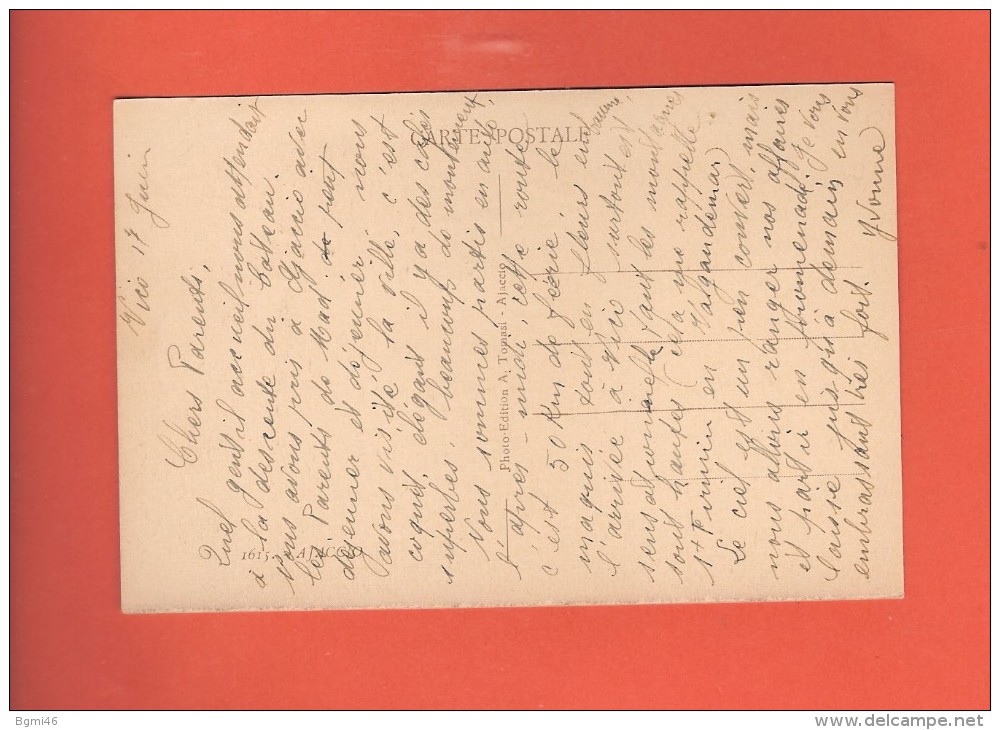 Vico 17 Juin
Chers Parents,
Quel gentil accueil nous attendait
à la descente du bateau.
Nous avons pris à Ajaccio avec
les Parents de Mad. petit
dejeuner et déjeuner nous
avons visité la ville, c'est
coquet élégant il y a des cafés
superbes, beaucoup de mouvement.
Nous sommes partis en auto
l'après-midi, cette route
c'est 50 Km de féerie le
maquis tout en fleurs en
l'arrivée à Vico surtout est
sensationnelle tant les montagnes
sont hautes (cela me rappelle
St Firmin en Valgaudemar)
Le ciel est un peu couvert, mais
nous allons ranger nos affaires
et partir en promenade. Je vous
laisse jusqu'à demain en vous
embrassant très fort.
Yvonne
CARTE POSTALE
Photo-Edition A. Tomasi - Ajaccio
1615. - AJACCIO
Bgmi46
delcampe.net